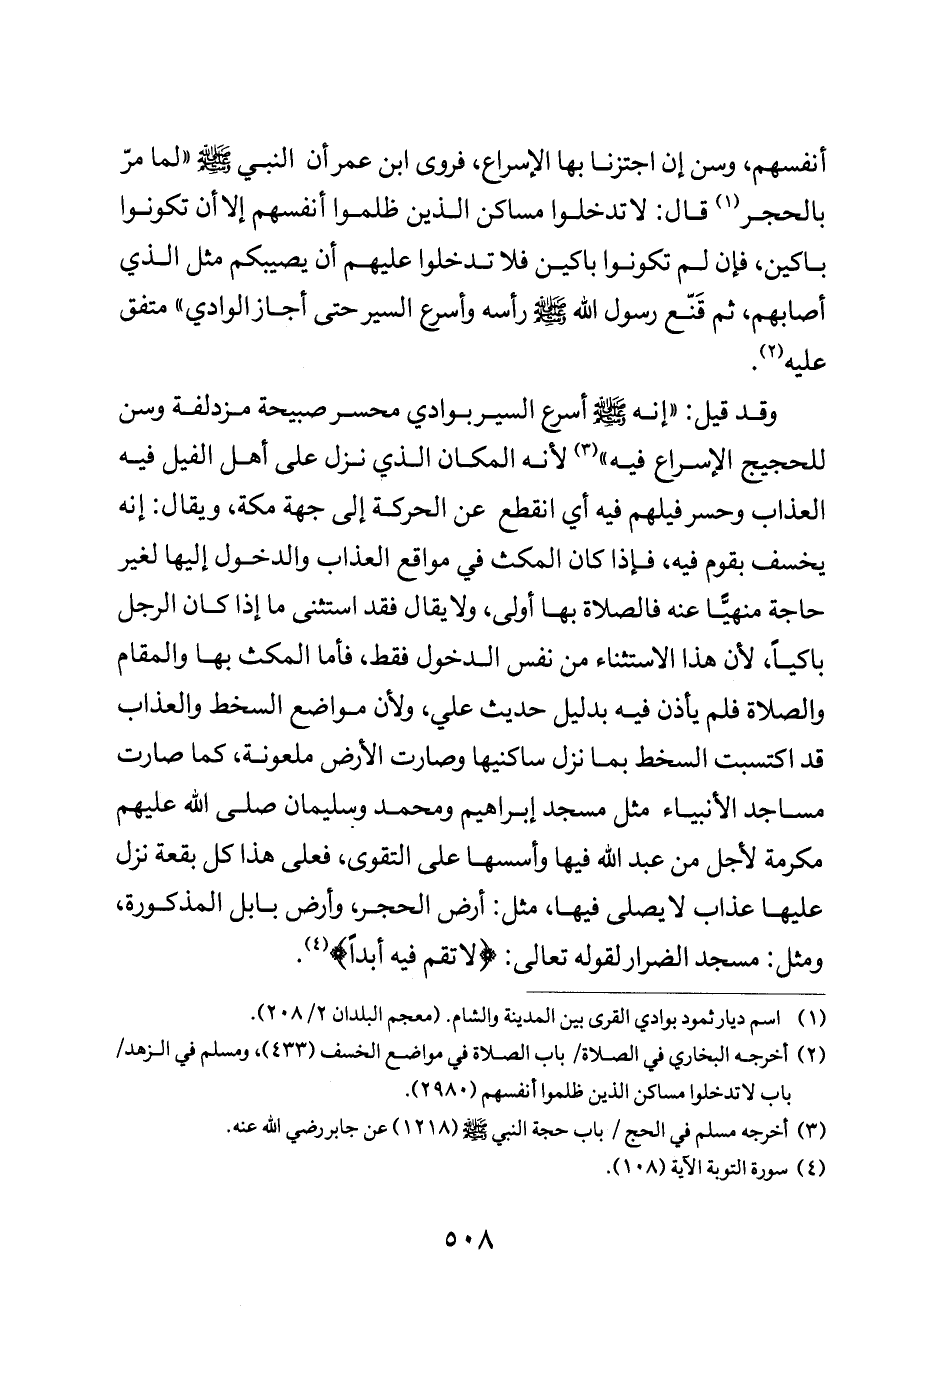 أنفسهم، وسن إن اجتزنا بها الإسراع، فروى ابن عمر أن النبي ﷺ «لما مرّ
بالحجر(١) قال: لا تدخلوا مساكن الذين ظلموا أنفسهم إلا أن تكونوا
باكين، فإن لم تكونوا باكين فلا تدخلوا عليهم أن يصيبكم مثل الذي
أصابهم، ثم قَنّع رسول الله ﷺ رأسه وأسرع السير حتى أجاز الوادي» متفق
عليه(٢).
وقد قيل: «إنه ﷺ أسرع السير بوادي محسر صبيحة مزدلفة وسن
للحجيج الإسراع فيه»(٣) لأنه المكان الذي نزل على أهل الفيل فيه
العذاب وحسر فيلهم فيه أي انقطع عن الحركة إلى جهة مكة، ويقال: إنه
يخسف بقوم فيه، فإذا كان المكث في مواقع العذاب والدخول إليها لغير
حاجة منهيًّا عنه فالصلاة بها أولى، ولا يقال فقد استثنى ما إذا كان الرجل
باكياً، لأن هذا الاستثناء من نفس الدخول فقط، فأما المكث بها والمقام
والصلاة فلم يأذن فيه بدليل حديث علي، ولأن مواضع السخط والعذاب
قد اكتسبت السخط بما نزل ساكنيها وصارت الأرض ملعونة، كما صارت
مساجد الأنبياء مثل مسجد إبراهيم ومحمد وسليمان صلى الله عليهم
مكرمة لأجل من عبد الله فيها وأسسها على التقوى، فعلى هذا كل بقعة نزل
عليها عذاب لا يصلى فيها، مثل: أرض الحجر، وأرض بابل المذكورة،
ومثل: مسجد الضرار لقوله تعالى: ﴿لا تقم فيه أبداً﴾(٤).
(١) اسم ديار ثمود بوادي القرى بين المدينة والشام. (معجم البلدان ٢/ ٢٠٨).
(٢) أخرجه البخاري في الصلاة/ باب الصلاة في مواضع الخسف (٤٣٣)، ومسلم في الزهد/
باب لا تدخلوا مساكن الذين ظلموا أنفسهم (٢٩٨٠).
(٣) أخرجه مسلم في الحج / باب حجة النبي ﷺ (١٢١٨) عن جابر رضي الله عنه.
(٤) سورة التوبة الآية (١٠٨).
٥٠٨